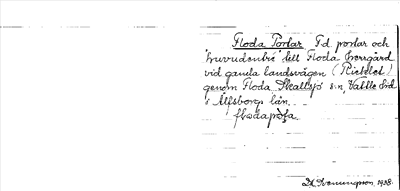 Floda Portar F.d. portar och
huvudentré till Floda herrgård
vid gamla landsvägen (Riddlet)
genom Floda Skallsjö s:n, Vättle hd
i Älfsborgs län.
flodaporta.
D. Svenningsson 1938.